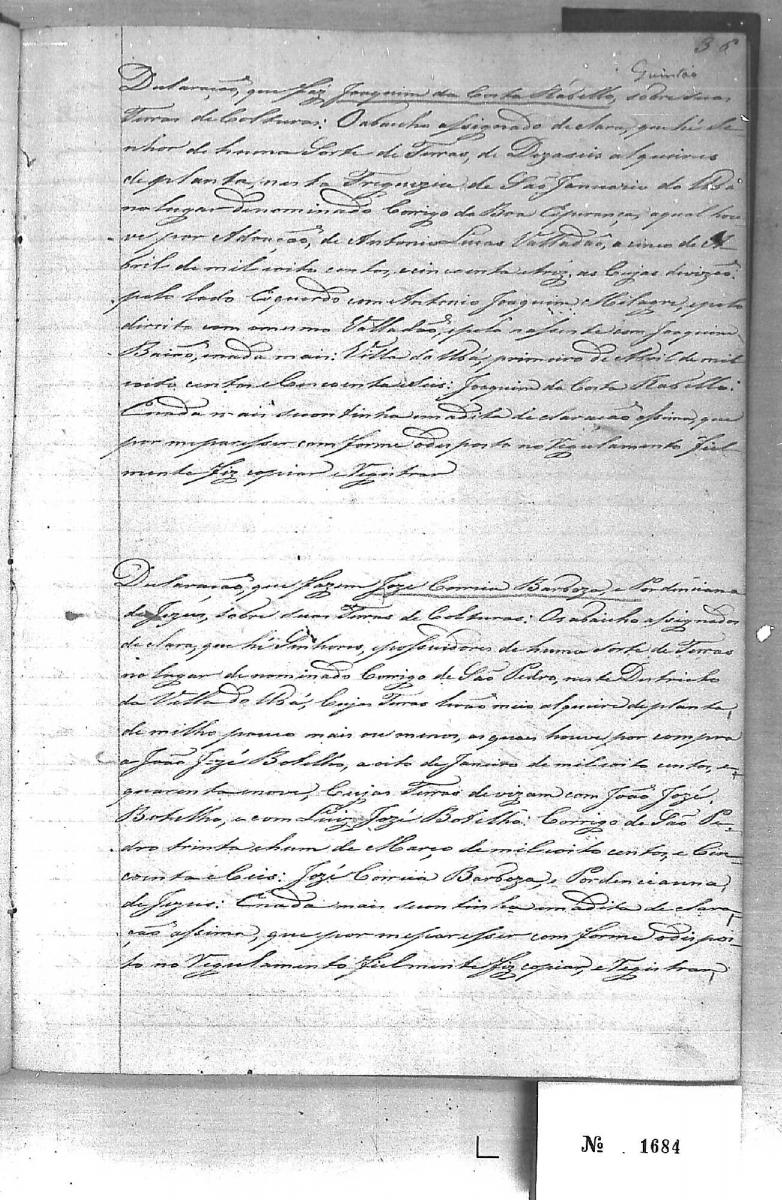 36
Quintão
Declaração, que faz Joaquim da Costa Rabello, sobre suas
Terras de Colturas: O abaicho assignado declara, que hé Se-
nhor de huma Sorte de Terras, de Dezaseis alqueires
de planta, nesta Freguezia de São Januario do Ubá
no lugar denominado Corrigo da Boa Esperança, a qual hou-
ve por Adoação, de Antonio Lucas Valladão, a cinco de A-
bril de mil oito centos, e cincoenta e triz, as Cujas divizão
pelo lado Esquerdo com Antonio Joaquim Milagre, e pelo
direito com o mesmo Valladão, e pela nassente com Joaquim
Baião, enada mais: Villa do Ubá, primeiro de Abril de mil
oito centos e Cincoenta e Seis: Joaquim da Costa Rabello:
Enada mais se continha em a dita declaração assima, que
por me paresser com forme o disposto no Regulamento fiel-
mente fiz copiar e Registrar
Declaração, que fazem Jozé Correia Barboza, e Pordenciana
de Jezus, sobre suas Terras de Colturas: Os abaicho assignados
declara, que hé Sinhores, e possuidores de huma sorte de Terras
no lugar denominado Corrigo de São Pedro, neste Destricto
da Villa do Ubá, Cujas Terras levão meio alqueire de planta
de milho pouco mais ou menos, as quaes houve por compra
a João Jozé Botelho, a oito de Janeiro de mil oito centos, e
quarenta e nove, Cujas Terras devizam com João Jozé
Botelho, e com Luiz Jozé Botelho: Corrigo de São Pe-
dro trinta e hum de Março de mil oito centos, e Cin-
coenta e Ceis: Jozé Correia Barboza, e Pordencianna
de Jezus: Enada mais se continha em a dita decla-
ração assima, que por me paresser com forme o dispos-
to no Regulamento, fielmente fiz copiar, e Registrar
Nº 1684